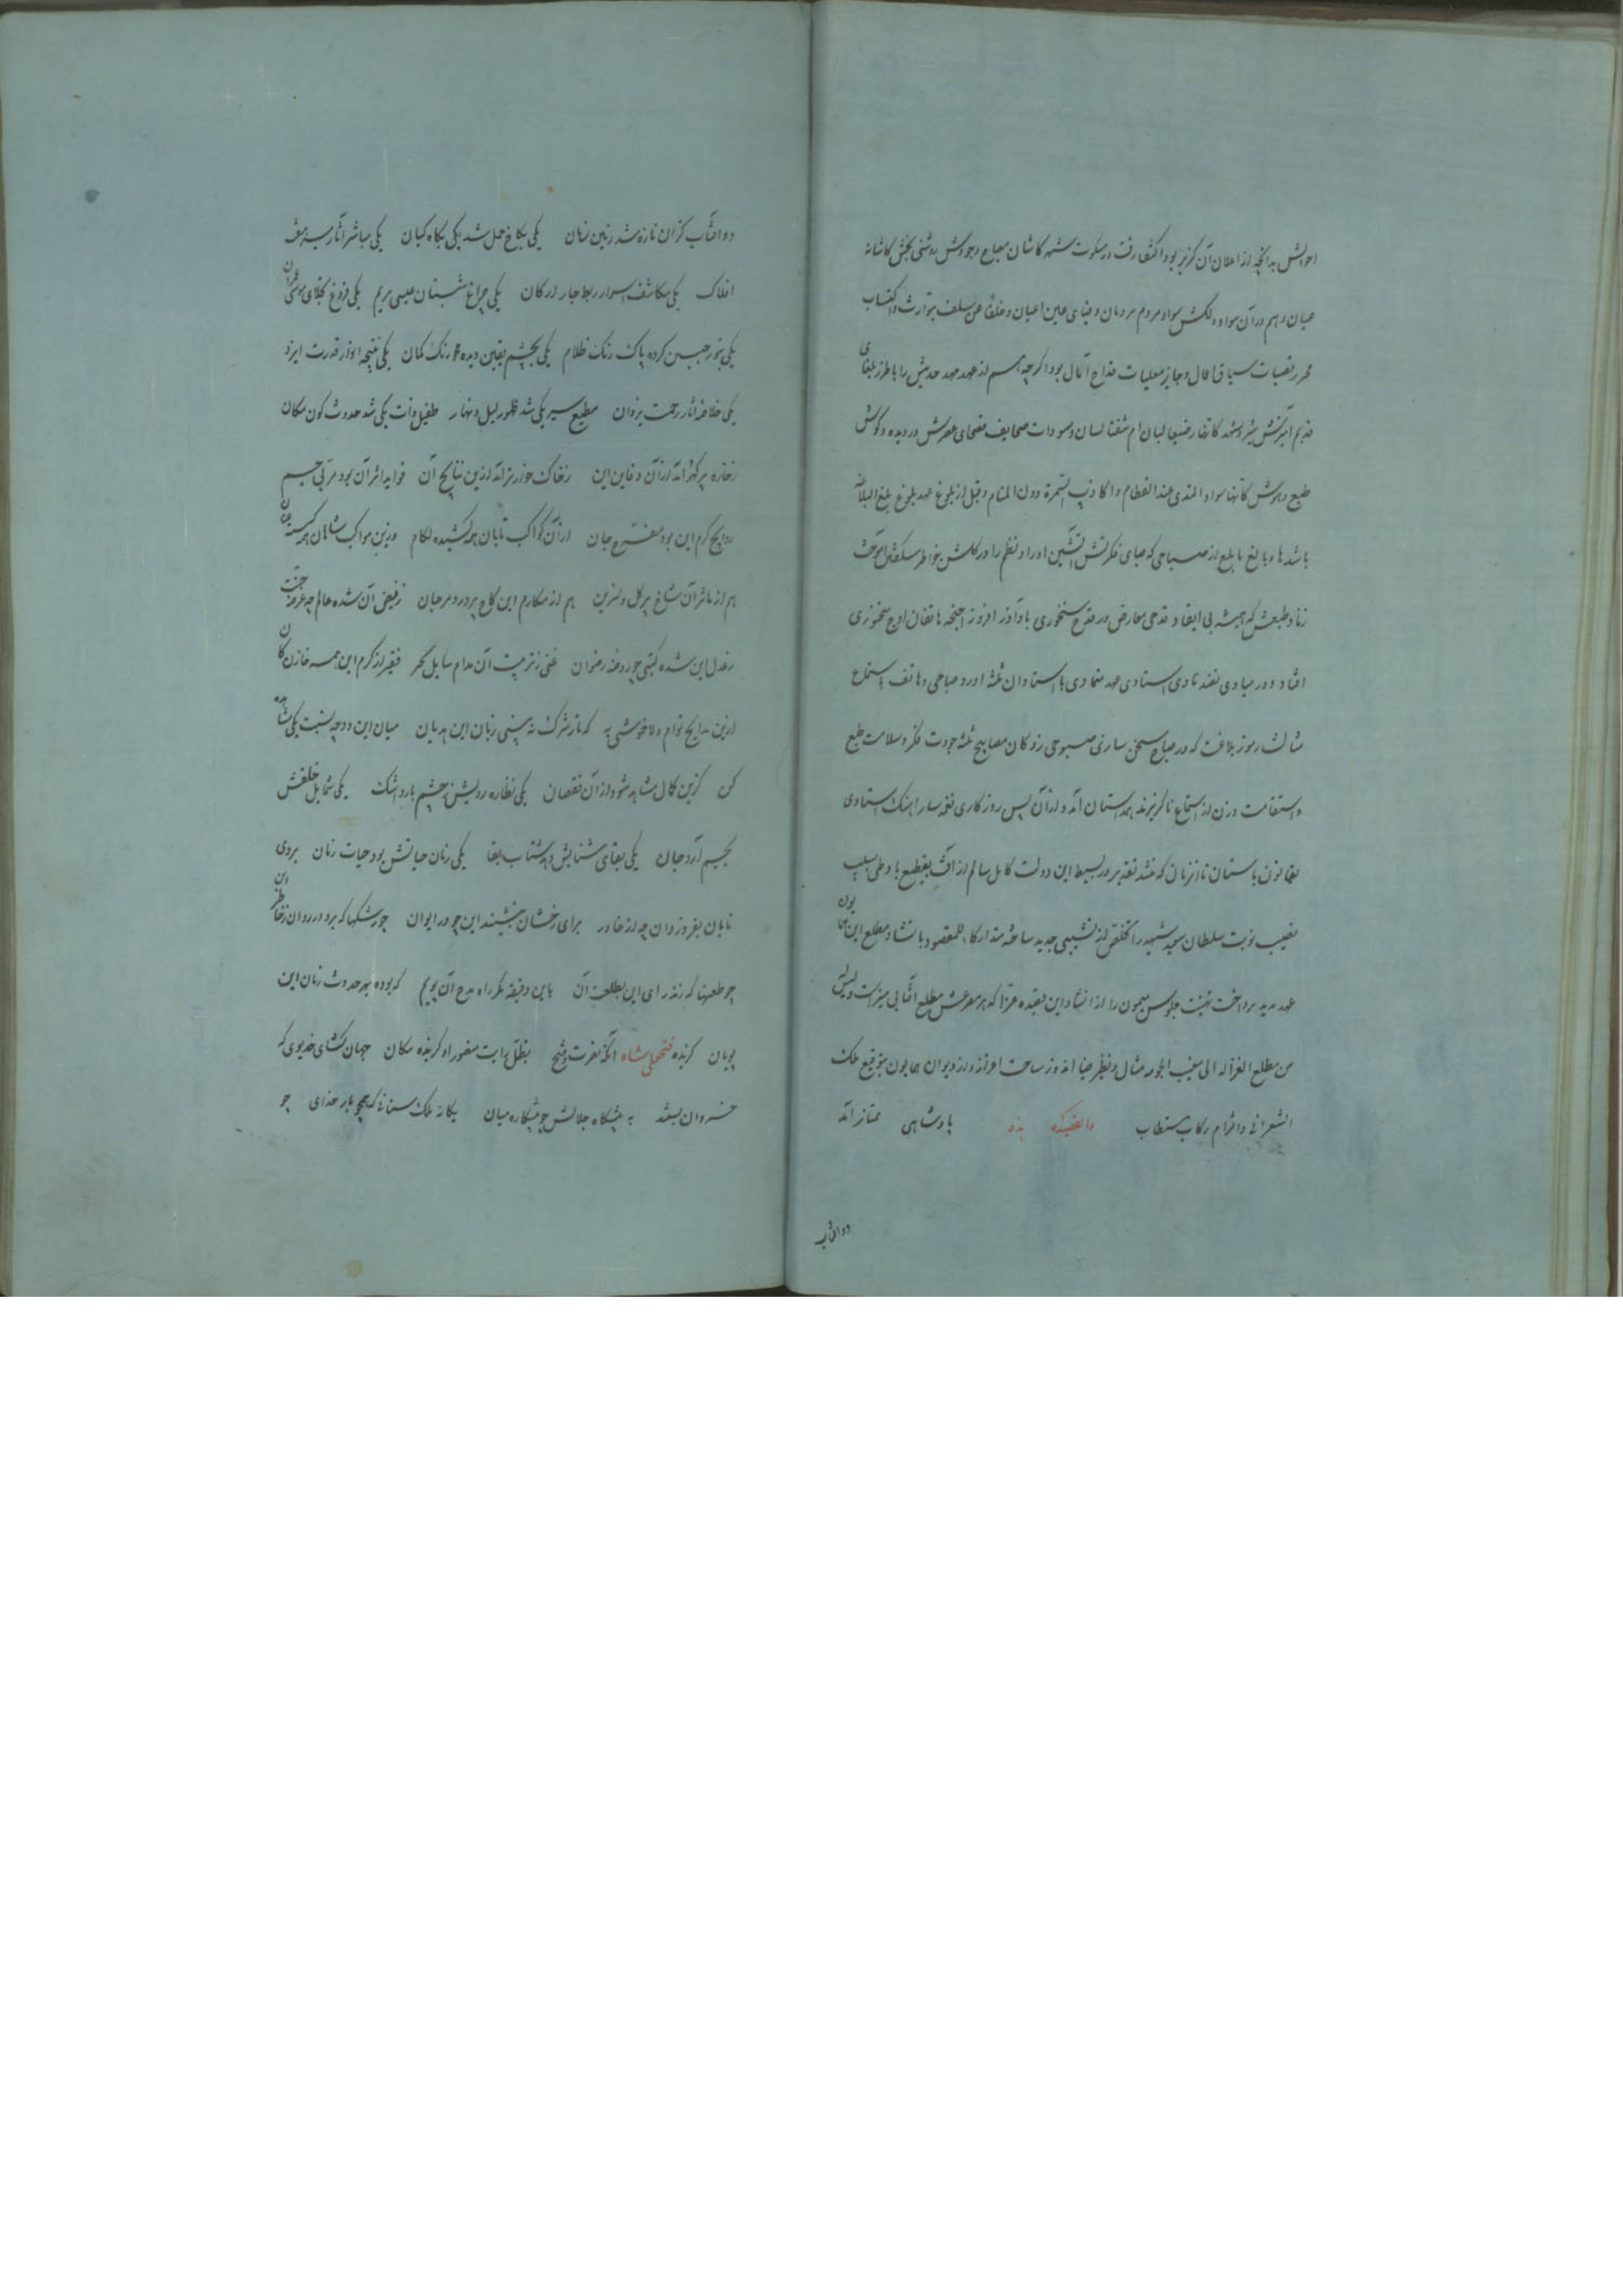 احوالش بدانچه از اعلان آن گزیر بود اکتفا رفت در ملکوت شهر کاشان مصباح وجودش روشنی بخش کاشانه
عیان و هم در آن سواد دلکش سواد مردم مردمان و ضیای عین اعیان و خلفا عن سلف بتوارث و اکتساب
محرر قصبات سیاق اقبال و مجاز معلیات قداح آمال بود اگر چه هم از عهد مهد حدیثش را با طرز بلغای
قدیم آمیزش شیر و شهد کانها رضیعا لبان ام شفتا لسان و مسودات صحایف فصحای عصرش در دیده و گوش
طبع و هوش کانها سواد المندی عند الفطام و اکاذیب السمرة دون المنام و قبل از بلوغ عهد بلوغ بلغ البلاغه
باشدها و بالغ ما بلغ از صباحی که صبای فکرتش آتشین اوراد نظم را در گلشن خواطر شکفتن آموخت
زناد طبعش که همیشه بی ایقاد قدحی معارض در قدح سخنوری باد آذر افروز اجنحه هاتفان اوج سخنوری
افتاد و در مبادی نقد نادی استادی عهد تمادی با استادان ثلثه اورد صباحی و هاتف استماع
مثالث رموز بلاغت که در صباح سخن ساری صبوحی زدگان مصابیح ثلثه جودت فکر و سلامت طبع
و استقامت وزن از استماع ناگزیرند همداستان آمد و از آن پس روزگاری نغمه سار آهنگ استادی
بقانون باستان تا آنزمان که منشد تقدیر در بسیط این دولت کامل سالم از آفت تقطیع با وطی سبب
نصیب نوبت سلطان سعید شهید را تخلص از تشبیبی جدید ساخته متدارکا للمقصود بانشاد مطلع این همایون
عهد مدید پرداخت تهنیت جلوس میمون را از انشاد این قصیده غرا که هر مصرعش مطلع آفتابی منیر است و لیس
من مطلع الغزاله الی مغیب الجوه مثال و نظیر ضیا اندوز ساحت اعزاز و از دیوان همایون بتوقیع ملک
الشعرانی و التزام رکاب مستطاب والقصیده هذه پادشاهی ممتاز آمد
دو افتاب
دو افتاب کزان تازه شد زمین و زمان یکی بکاخ حمل شد یکی بگاه کیان یکی مباشر آثار سیر هفت
افلاک یکی مکاشف اسرار ربط چار ارکان یکی چراغ شبستان عیسی مریم یکی فروغ تجلای موسی عمران
یکی بنور جبین کرده پاک زنگ ظلام یکی بچشم یقین دیده محو رنگ گمان یکی نتیجه انوار قدرت ایزد
یکی خلاصه آثار رحمت یزدان مطیع سیر یکی شد ظهور لیل و نهار طفیل ذات یکی شد حدوث کون و مکان
زخاره پر گهر آمد از آن دفاین این زخاک خوارتر آمد ازین نتایج آن فواید اثر آن بود مربی جسم
روایح کرم این بود مفرح جان از آن کواکب تابان همه کشیده لگام وزین مواکب شاهان همه گسسته عنان
هم از مآثر آن شاخ پر گل و نسرین هم از مکارم این کاخ پر در و مرجان ز فیض آن شده عالم چه عرصه جنت
ز عدل این شده گیتی چو روضه رضوان غنی ز تربیت آن مدام سایل بحر فقیر از کرم این همه خازن کان
ازین مدایح توام دلا خوشی به که تا ز شرک نه بینی زبان این هذیان میان این دو چه نسبت یکی مشاهده
کن کزین کمال مشاهد شود از آن نقصان یکی نظاره رویش ز چشم بارد اشک یکی شمایل خلقش
بجسم آرد جان یکی بقای شتابش دهد شتاب بقا یکی زمان حیاتش بود حیات زمان بروی
تابان بفروزد آن چه از خاور برای رخشان بنشیند این چو در ایوان چو رشکها که برد در روان ز خاطر این
چو طعنها که زند رای این بطلعت آن باین دقیقه مگر راه مدح آن پویم که بوده بهر حدوث زمان این
پویان گزیده فتحعلی شاه آنکه نصرت و فتح بظل رایت منصور او گزیده مکان جهان گشای خدیوی که
خسروان بستند به پیشگاه جلالش چو پیشکاره میان یگانه ملک ستانی که همچو بار خدای چو